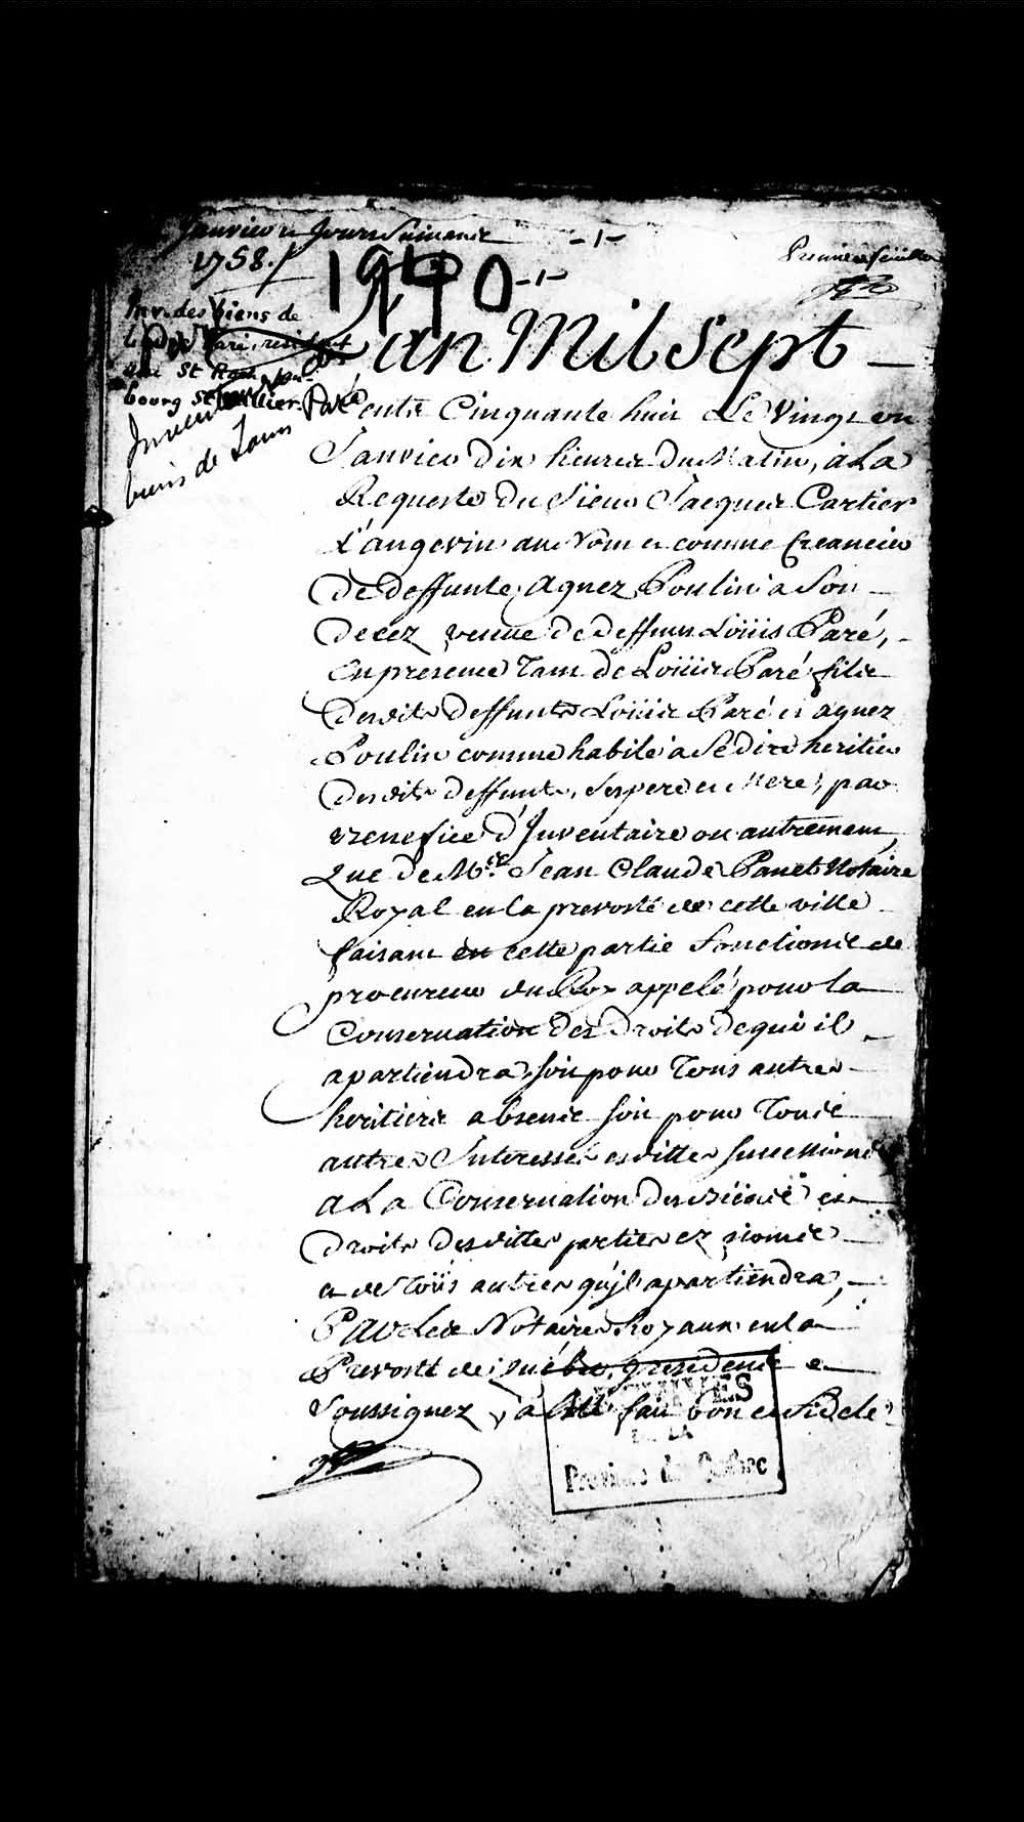 Janvier et Jours Suivants
1758.
-1-
Premiere feuille
1940 -1-
Inv. des biens de
Paré, résidant
rue St Roch,
bourg St
Inven
biens de Louis Paré
L'an Mil Sept
Cents Cinquante huit Le Vingt un
Janvier dix heures du Matin, a La
Requeste du Sieur Jacques Cartier
L'angevin au Nom et comme Creancier
De deffunte Agnez Poulin a Son
decez veuve de deffunt Loüis Paré,
En presence Tant de Loüis Paré filz
Desdits deffunts Loüis Paré et agnez
Poulin comme habile a Se dire heritier
Desdits deffunts, Ses pere et Mere, par
Benefice d'Inventaire ou autrement,
Que de Mtre Jean Claude Panet Notaire
Royal en la prevosté de cette ville
faisant en cette partie fonctions de
procureur du Roy appelé pour la
Conservation des Droits de qui il
apartiendra, soit pour Tous autres
heritiers absents soit pour Tous
autres Interessés esdittes successions
a La Conservation des Biens et
Droits desdittes parties ez noms
et de Toüs autres qu'jl apartiendra,
Par Les Notaires Royaux en la
Prevosté de Québec, y residents et
Soussignez, a été fait bon et fidele
ARCHIVES
DE LA
Province de Québec